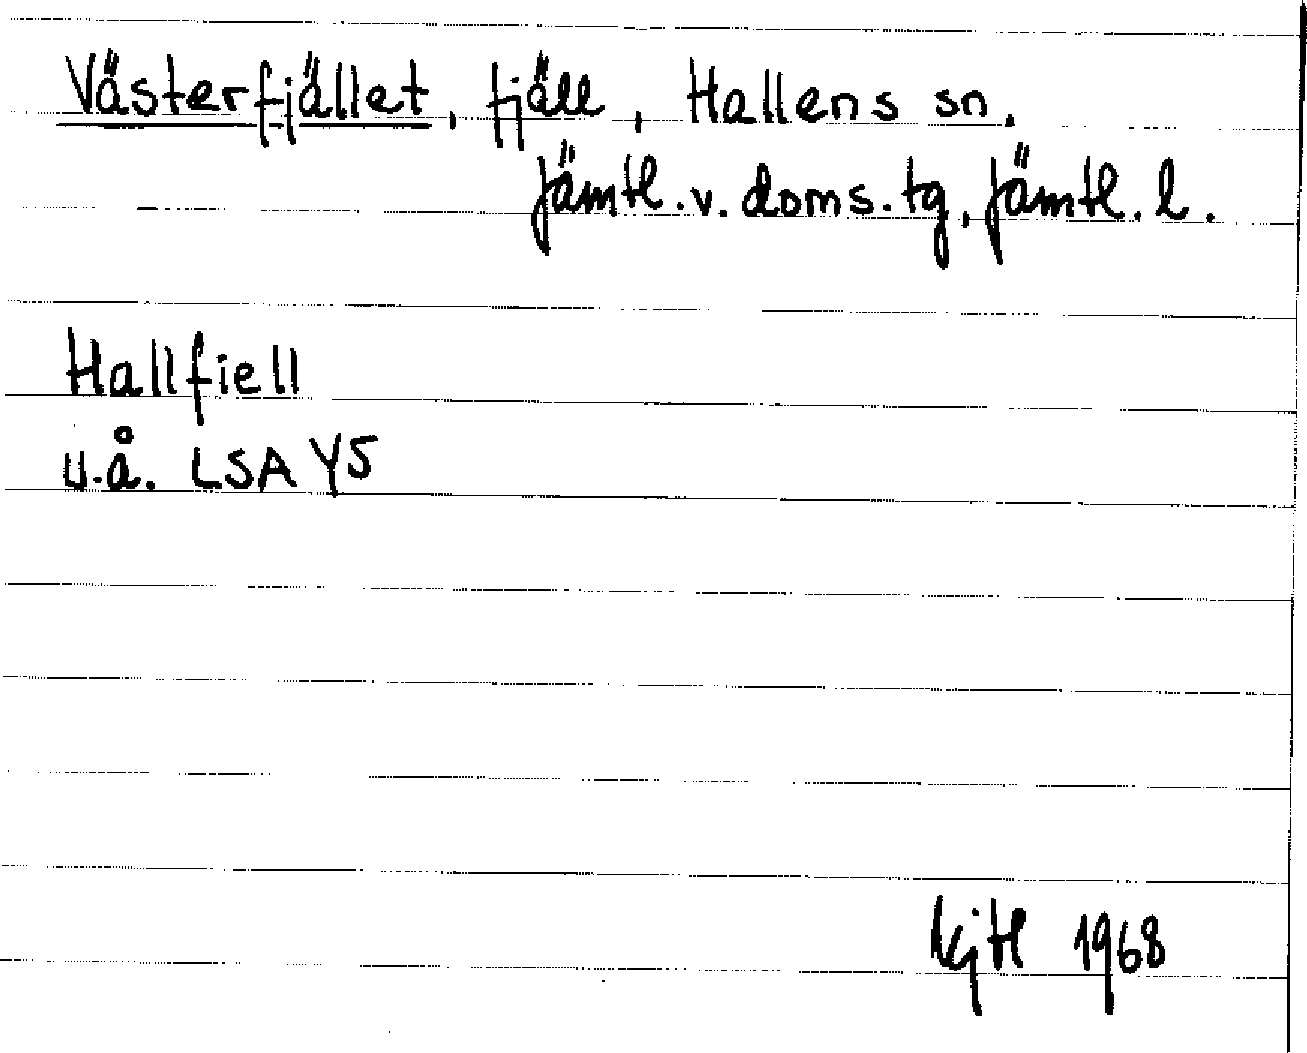 Västerfjället, fjäll, Hallens sn.
Jämtl. v. doms. tg, Jämtl. l.
Hallfiell
u.å. LSA Y5
1968